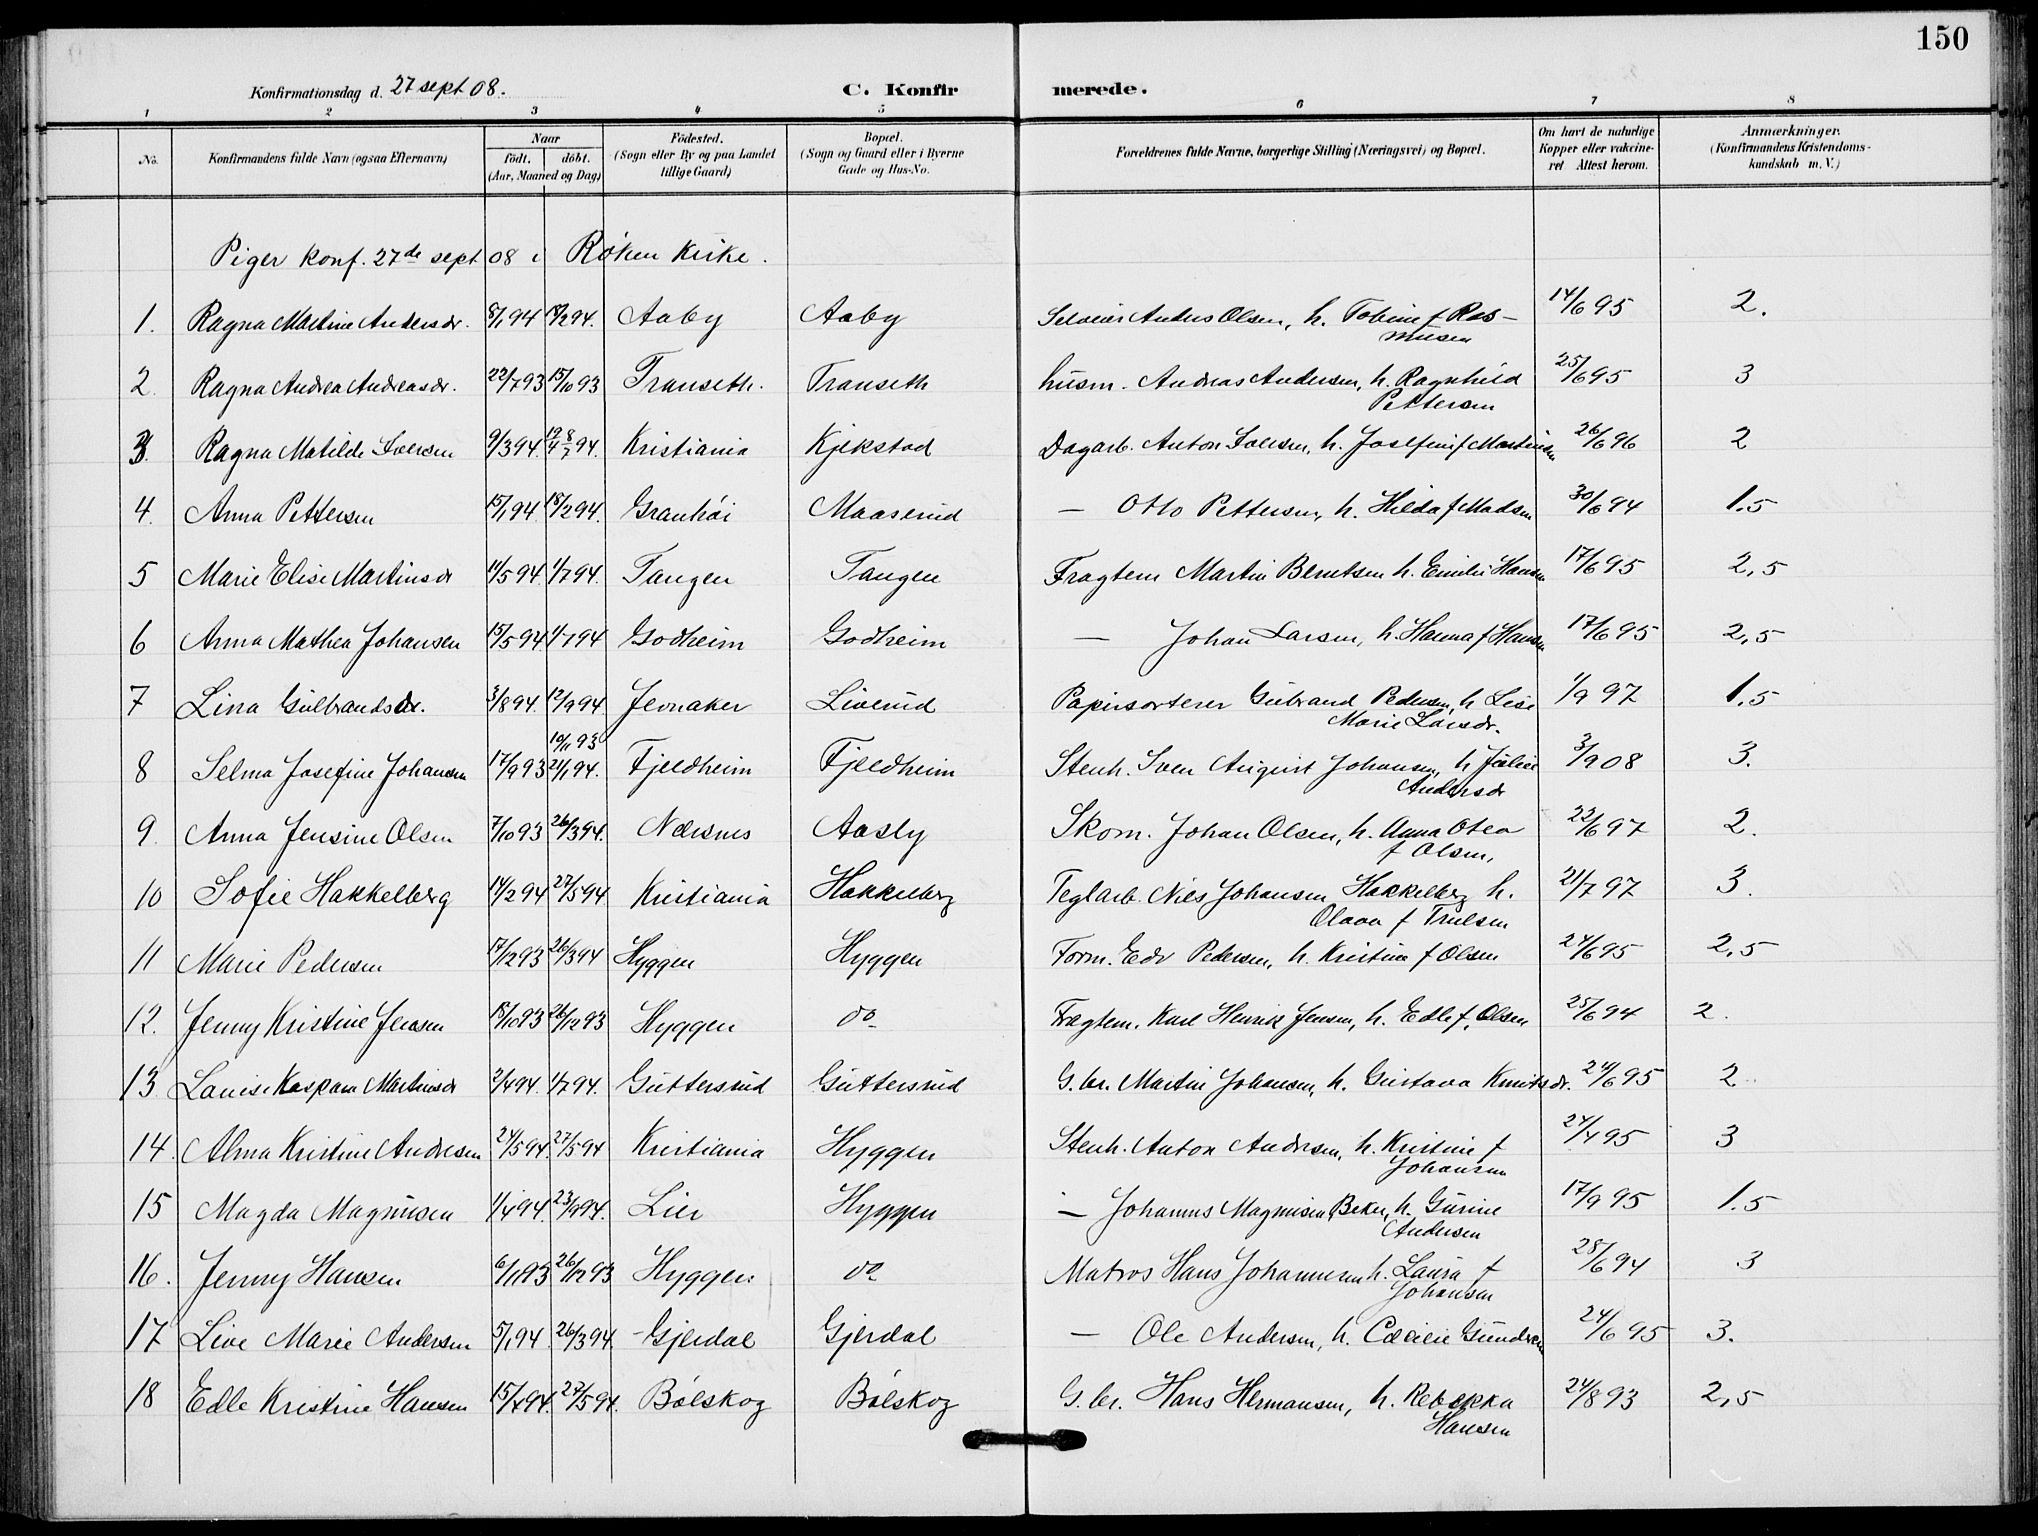 150
Konfirmationsdag d. 27 sept 08. C. Konfirmerede.
1 2 3 4 5 6 7 8
No. Konfirmandens fulde Navn (ogsaa Efternavn) Naar født, døbt. (Aar, Maaned og Dag) Fødested. (Sogn eller By og paa Landet tillige Gaard) Bopæl. (Sogn og Gaard eller i Byerne Gade og Hus-No. Forældrenes fulde Navne, borgerlige Stilling (Næringsvei) og Bopæl. Om havt de naturlige Kopper eller vakcineret Attest herom. Anmærkninger. (Konfirmandens Kristendomskundskab m. V.)
Piger konf. 27de sept 08 i Røken Kirke.
1. Ragna Martine Andersdr. 8/1 94 18/2 94. Aaby Aaby Selveier Anders Olsen, h. Tobine f Ras- 14/6 95 2.
musen
2. Ragna Andrea Andreasdr. 22/7 93 15/10 93 Transeth. Transeth husm. Andreas Andersen, h. Ragnhild 25/6 95 3
Pettersen
3. Ragna Matilde Iversen 9/3 94 19/4 8/7 94. Kristiania Kjekstad Dagarb. Anton Iversen, h. Josefine f Martinsen 26/6 96 2
4. Anna Pettersen 15/1 94 18/2 94. Granhøi Maaserud — Otto Pettersen, h. Hilda f Madsen 30/6 94 1.5
5 Marie Elise Martinsdr 11/5 94 1/7 94. Tangen Tangen Fragtem Martin Berntsen h. Emilie Hansen 17/6 95 2,5
6 Anna Mathea Johansen 15/5 94 1/7 94 Godheim Godheim — Johan Larsen, h. Hanna f Hansen 17/6 95 2,5
7 Lina Gulbrandsdr. 3/8 94. 12/9 94 Jevnaker Liverud Papirsorterer Gulbrand Pedersen, h Lise 1/9 97 1.5
Marie Larsdr.
10/11 93
8 Selma Josefine Johansen 17/9 93 21/1 94. Fjeldheim Fjeldheim Stenh. Sven August Johansen, h Julie 3/9 08 3.
Andersdr
9. Anna Jensine Olsen 7/10 93 26/3 94. Nærsnes Aasly Skom. Johan Olsen, h. Anna Otea 22/6 97 2.
f Olsen,
10 Sofie Hakkelberg 14/2 94 27/5 94 Kristiania Hakkelberg Teglarb. Nils Johansen Hakkelberg h. 21/7 97 3.
Olava f Trulsen
11 Marie Pedersen 17/12 93 26/3 94 Hyggen Hyggen Form. Edv Pedersen, h. Kristine f Olsen 24/6 95 2,5
12. Jenny Kristine Jensen 18/10 93 26/12 93 Hyggen do Fragtem. Karl Henrik Jensen, h. Edle f. Olsen 25/6 94 2.
13. Lovise Kaspara Martinsdr 2/4 94. 1/7 94. Guttersrud Guttersrud G.br. Martin Johansen, h. Gustava Knutsdr. 24/6 95 2
14. Alma Kristine Andresen 24/5 94. 27/5 94 Kristiania Hyggen Stenh. Anton Andresen, h. Kristine f 27/4 95 3
Johansen
15 Magda Magnusen 1/4 94. 23/9 94. Lier Hyggen — Johannes Magnusen Beker, h. Gurine 17/9 95 1.5
Andersen
16. Jenny Hansen 6/11 93 26/12 93 Hyggen do Matros Hans Johannesen h. Laura f 28/6 94 3
Johansen
17 Live Marie Andersen 5/1 94. 26/3 94. Gjerdal Gjerdal — Ole Andersen, h. Cæcilie Gundersen 24/6 95 3.
18 Edle Kristine Hansen 15/4 94. 27/5 94. Bølskog Bølskog G.br. Hans Hermansen, h. Rebekka 24/8 93 2,5
Hansen